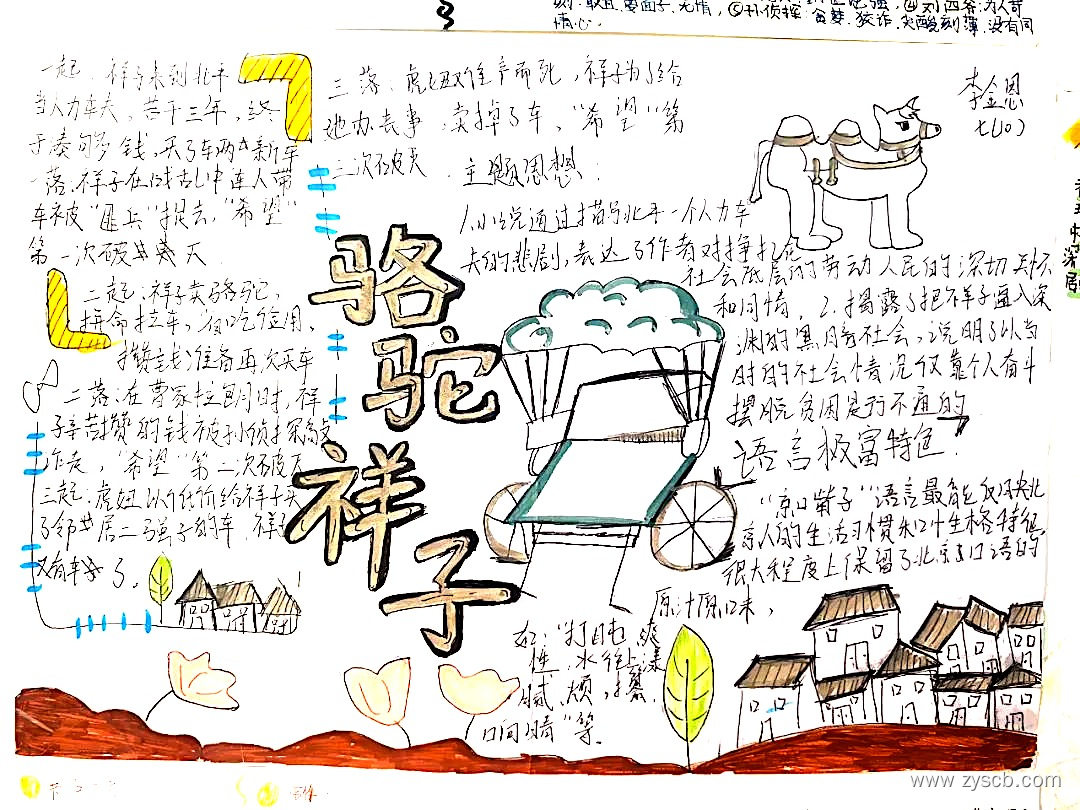 情心。
一起:祥子来到北平
当人力车夫,苦干三年,终
于凑够钱,买了车两新车
一落:祥子在战乱中连人带
车被"匪兵"捉去,"希望"
第一次破灭
二起:祥子卖骆驼,
拼命拉车,省吃俭用,
攒钱准备再次买车
二落:在曹家拉包月时,祥
子辛苦攒的钱被孙侦探敲
诈走,"希望"第二次破灭
三起:虎妞以低价给祥子买
了邻居二强子的车,祥子
又有车了。
三落:虎妞难产而死,祥子为了给
她办丧事,卖掉了车,"希望"第
三次破灭.
主题思想:
1.小说通过描写北平一个人力车
夫的悲剧,表达了作者对挣扎在
社会底层的劳动人民的深切关怀
和同情,2.揭露了把祥子逼入深
渊的黑暗社会,说明了以当
时的社会情况仅靠个人奋斗
摆脱贫困是行不通的
语言极富特色.
"京口"语言最能反映北
京人的生活习惯和性格特征
很大程度上保留了北京口语的
原汁原味,
如:"打
性,水
腻,烦,
"等.
骆驼
祥子
李金恩
七(10)
www.zyscb.com